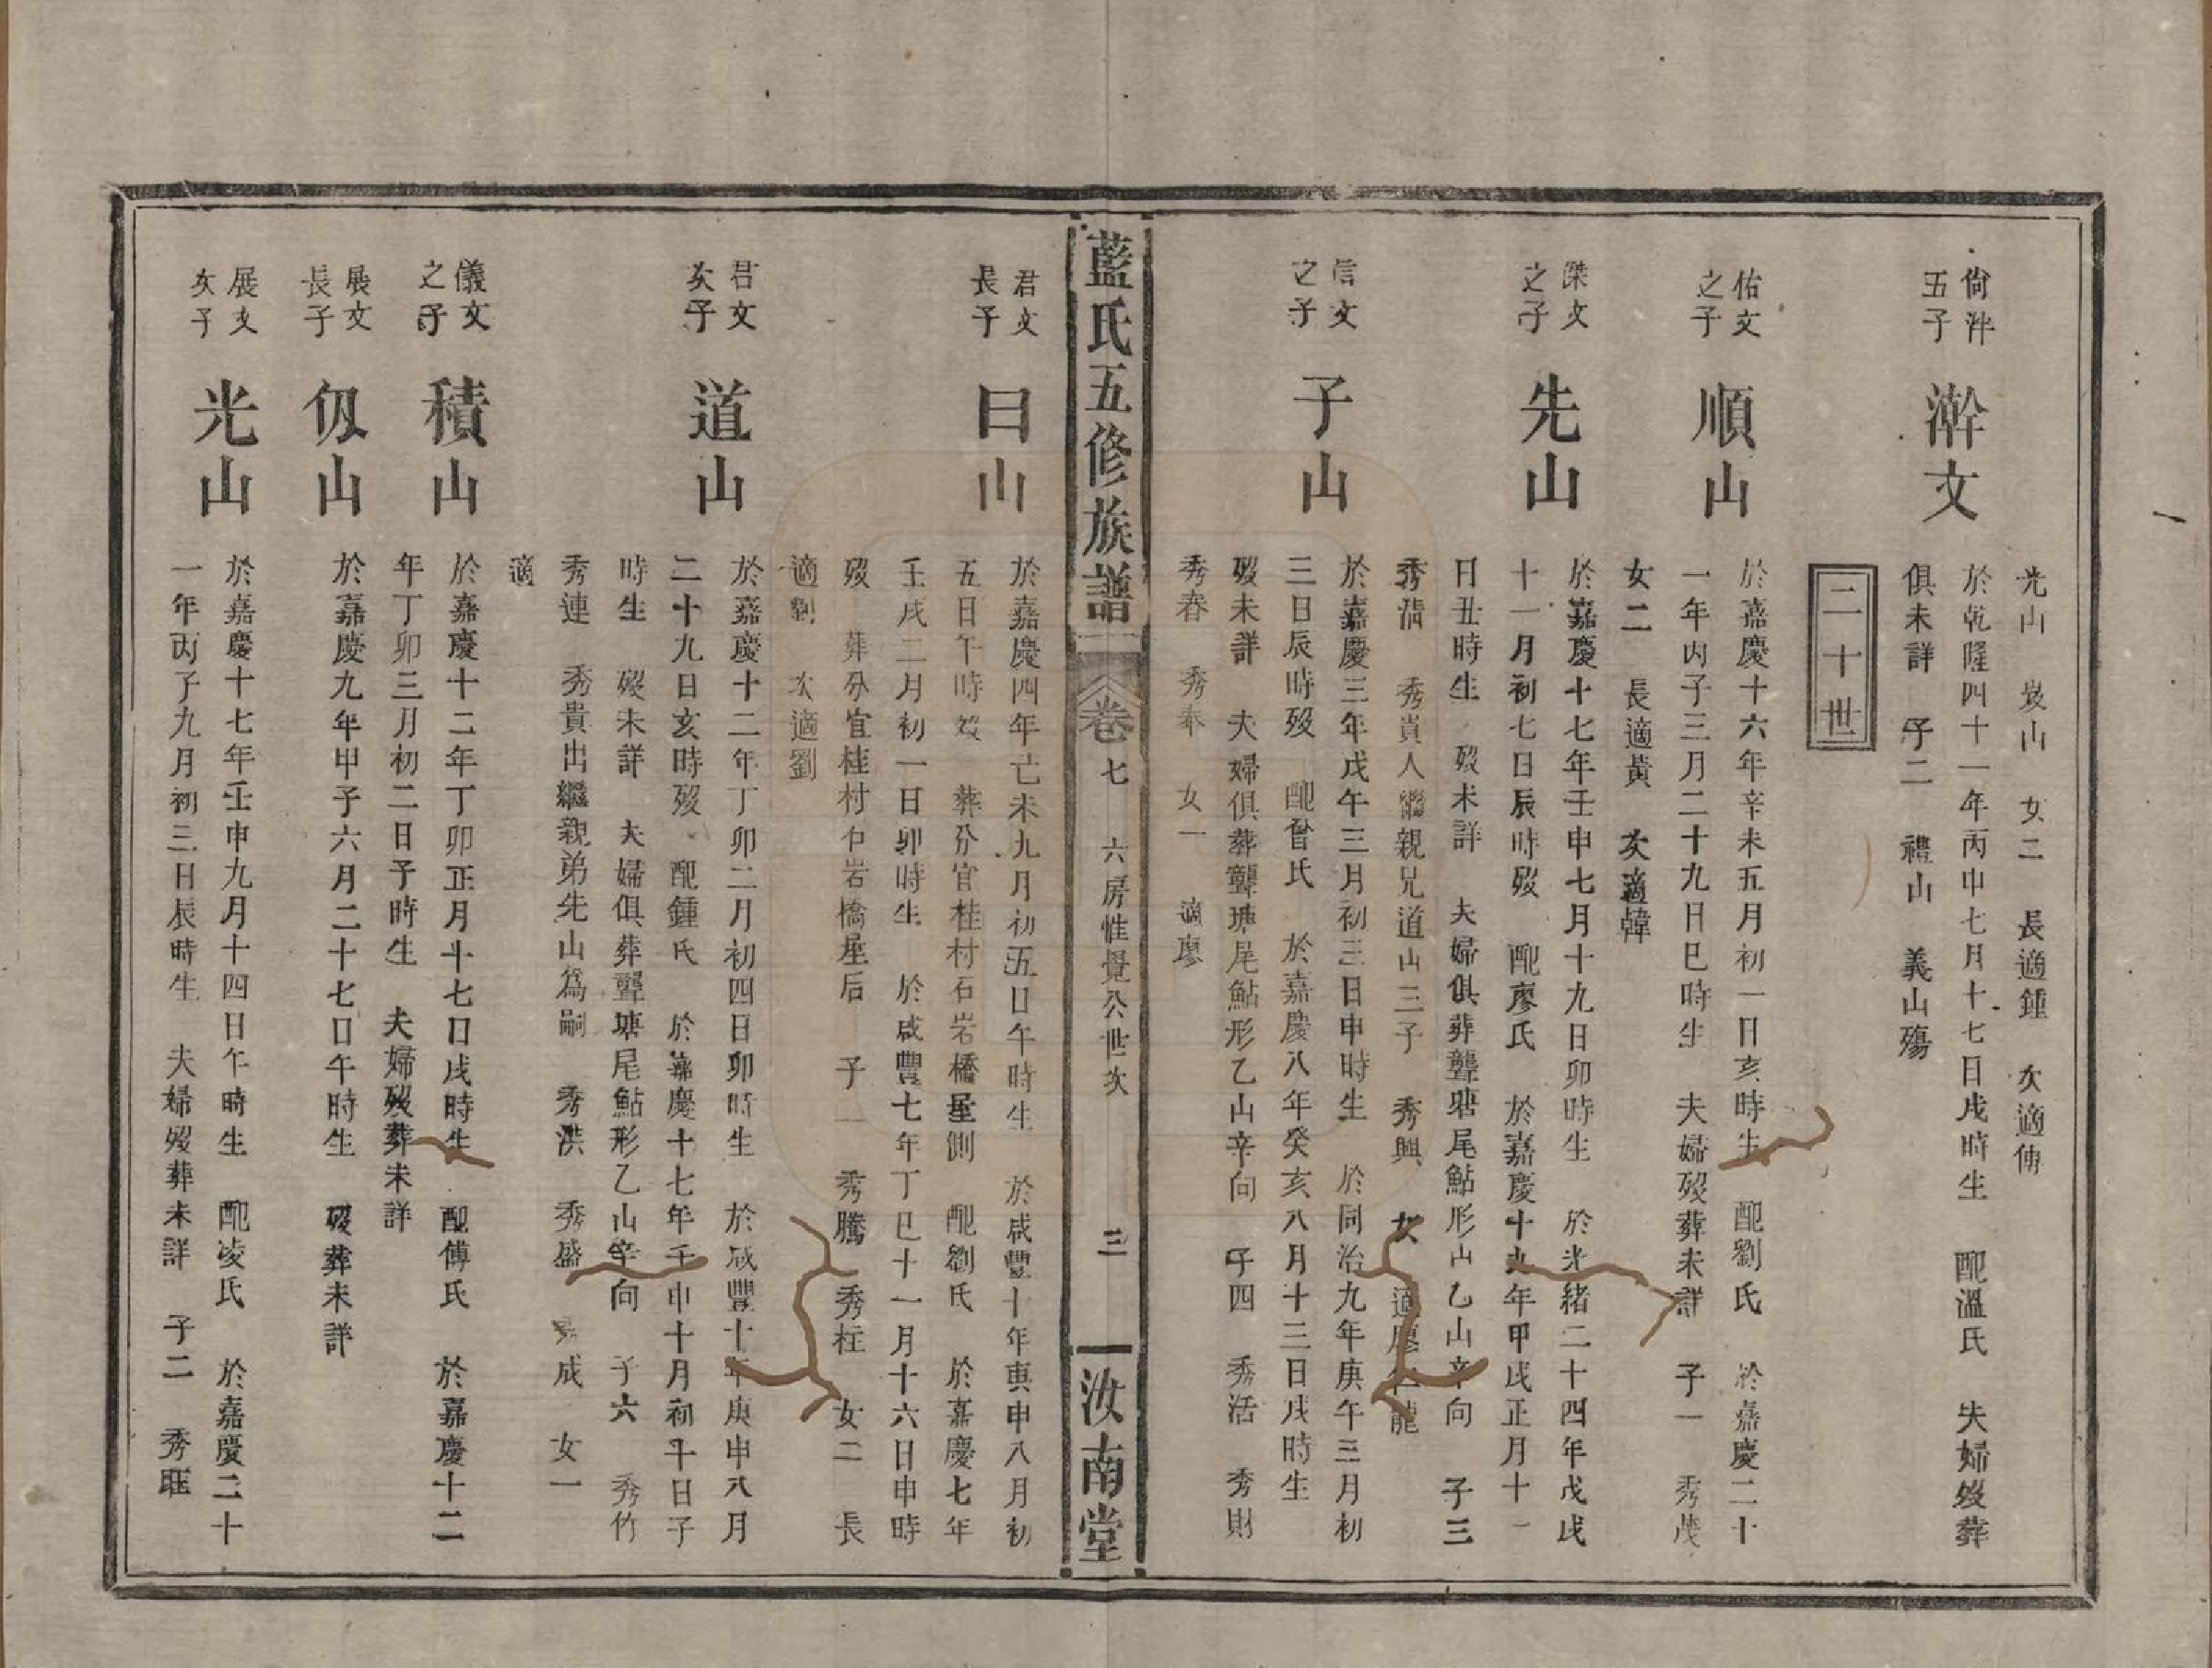 光山　岌山　女二　長適鍾　次適傅
尙泮五子　澣文　於乾隆四十一年丙申七月十七日戌時生　配溫氏　夫婦歿葬
俱未詳　子二　禮山　義山殤
二十世
佑文之子　順山　於嘉慶十六年辛未五月初一日亥時生　配劉氏　於嘉慶二十
一年丙子三月二十九日巳時生　夫婦歿葬未詳　子一　秀茂
女二　長適黃　次適韓
傑文之子　先山　於嘉慶十七年壬申七月十九日卯時生　於光緒二十四年戊戌
十一月初七日辰時歿　配廖氏　於嘉慶十九年甲戌正月十一
日丑時生　歿未詳　夫婦俱葬聾塘尾鮎形山乙山辛向　子三
秀清　秀貴人繼親兄道山三子　秀興　女　適廖仁龍
信文之子　子山　於嘉慶三年戊午三月初三日申時生　於同治九年庚午三月初
三日辰時歿　配曾氏　於嘉慶八年癸亥八月十三日戌時生
歿未詳　夫婦俱葬聾塘尾鮎形乙山辛向　子四　秀活　秀財
秀春　秀奉　女一　適廖
藍氏五修族譜　卷七　六房惟覺公世次　三　汝南堂
君文長子　曰山　於嘉慶四年己未九月初五日午時生　於咸豐十年庚申八月初
五日午時歿　葬分宜桂村石岩橋星側　配劉氏　於嘉慶七年
壬戌二月初一日卯時生　於咸豐七年丁巳十一月十六日申時
歿　葬分宜桂村石岩橋星后　子一　秀騰　秀枉　女二　長
適劉　次適劉
君文次子　道山　於嘉慶十二年丁卯二月初四日卯時生　於咸豐十年庚申八月
二十九日亥時歿　配鍾氏　於嘉慶十七年壬申十月初十日子
時生　歿未詳　夫婦俱葬聾塘尾鮎形乙山辛向　子六　秀竹
秀連　秀貴出繼親弟先山為嗣　秀洪　秀盛　成　女一
適
儀文之子　積山　於嘉慶十二年丁卯正月十七日戌時生　配傅氏　於嘉慶十二
年丁卯三月初二日子時生　夫婦歿葬未詳
展文長子　伋山　於嘉慶九年甲子六月二十七日午時生　歿葬未詳
展文次子　光山　於嘉慶十七年壬申九月十四日午時生　配凌氏　於嘉慶二十
一年丙子九月初三日辰時生　夫婦歿葬未詳　子二　秀旺